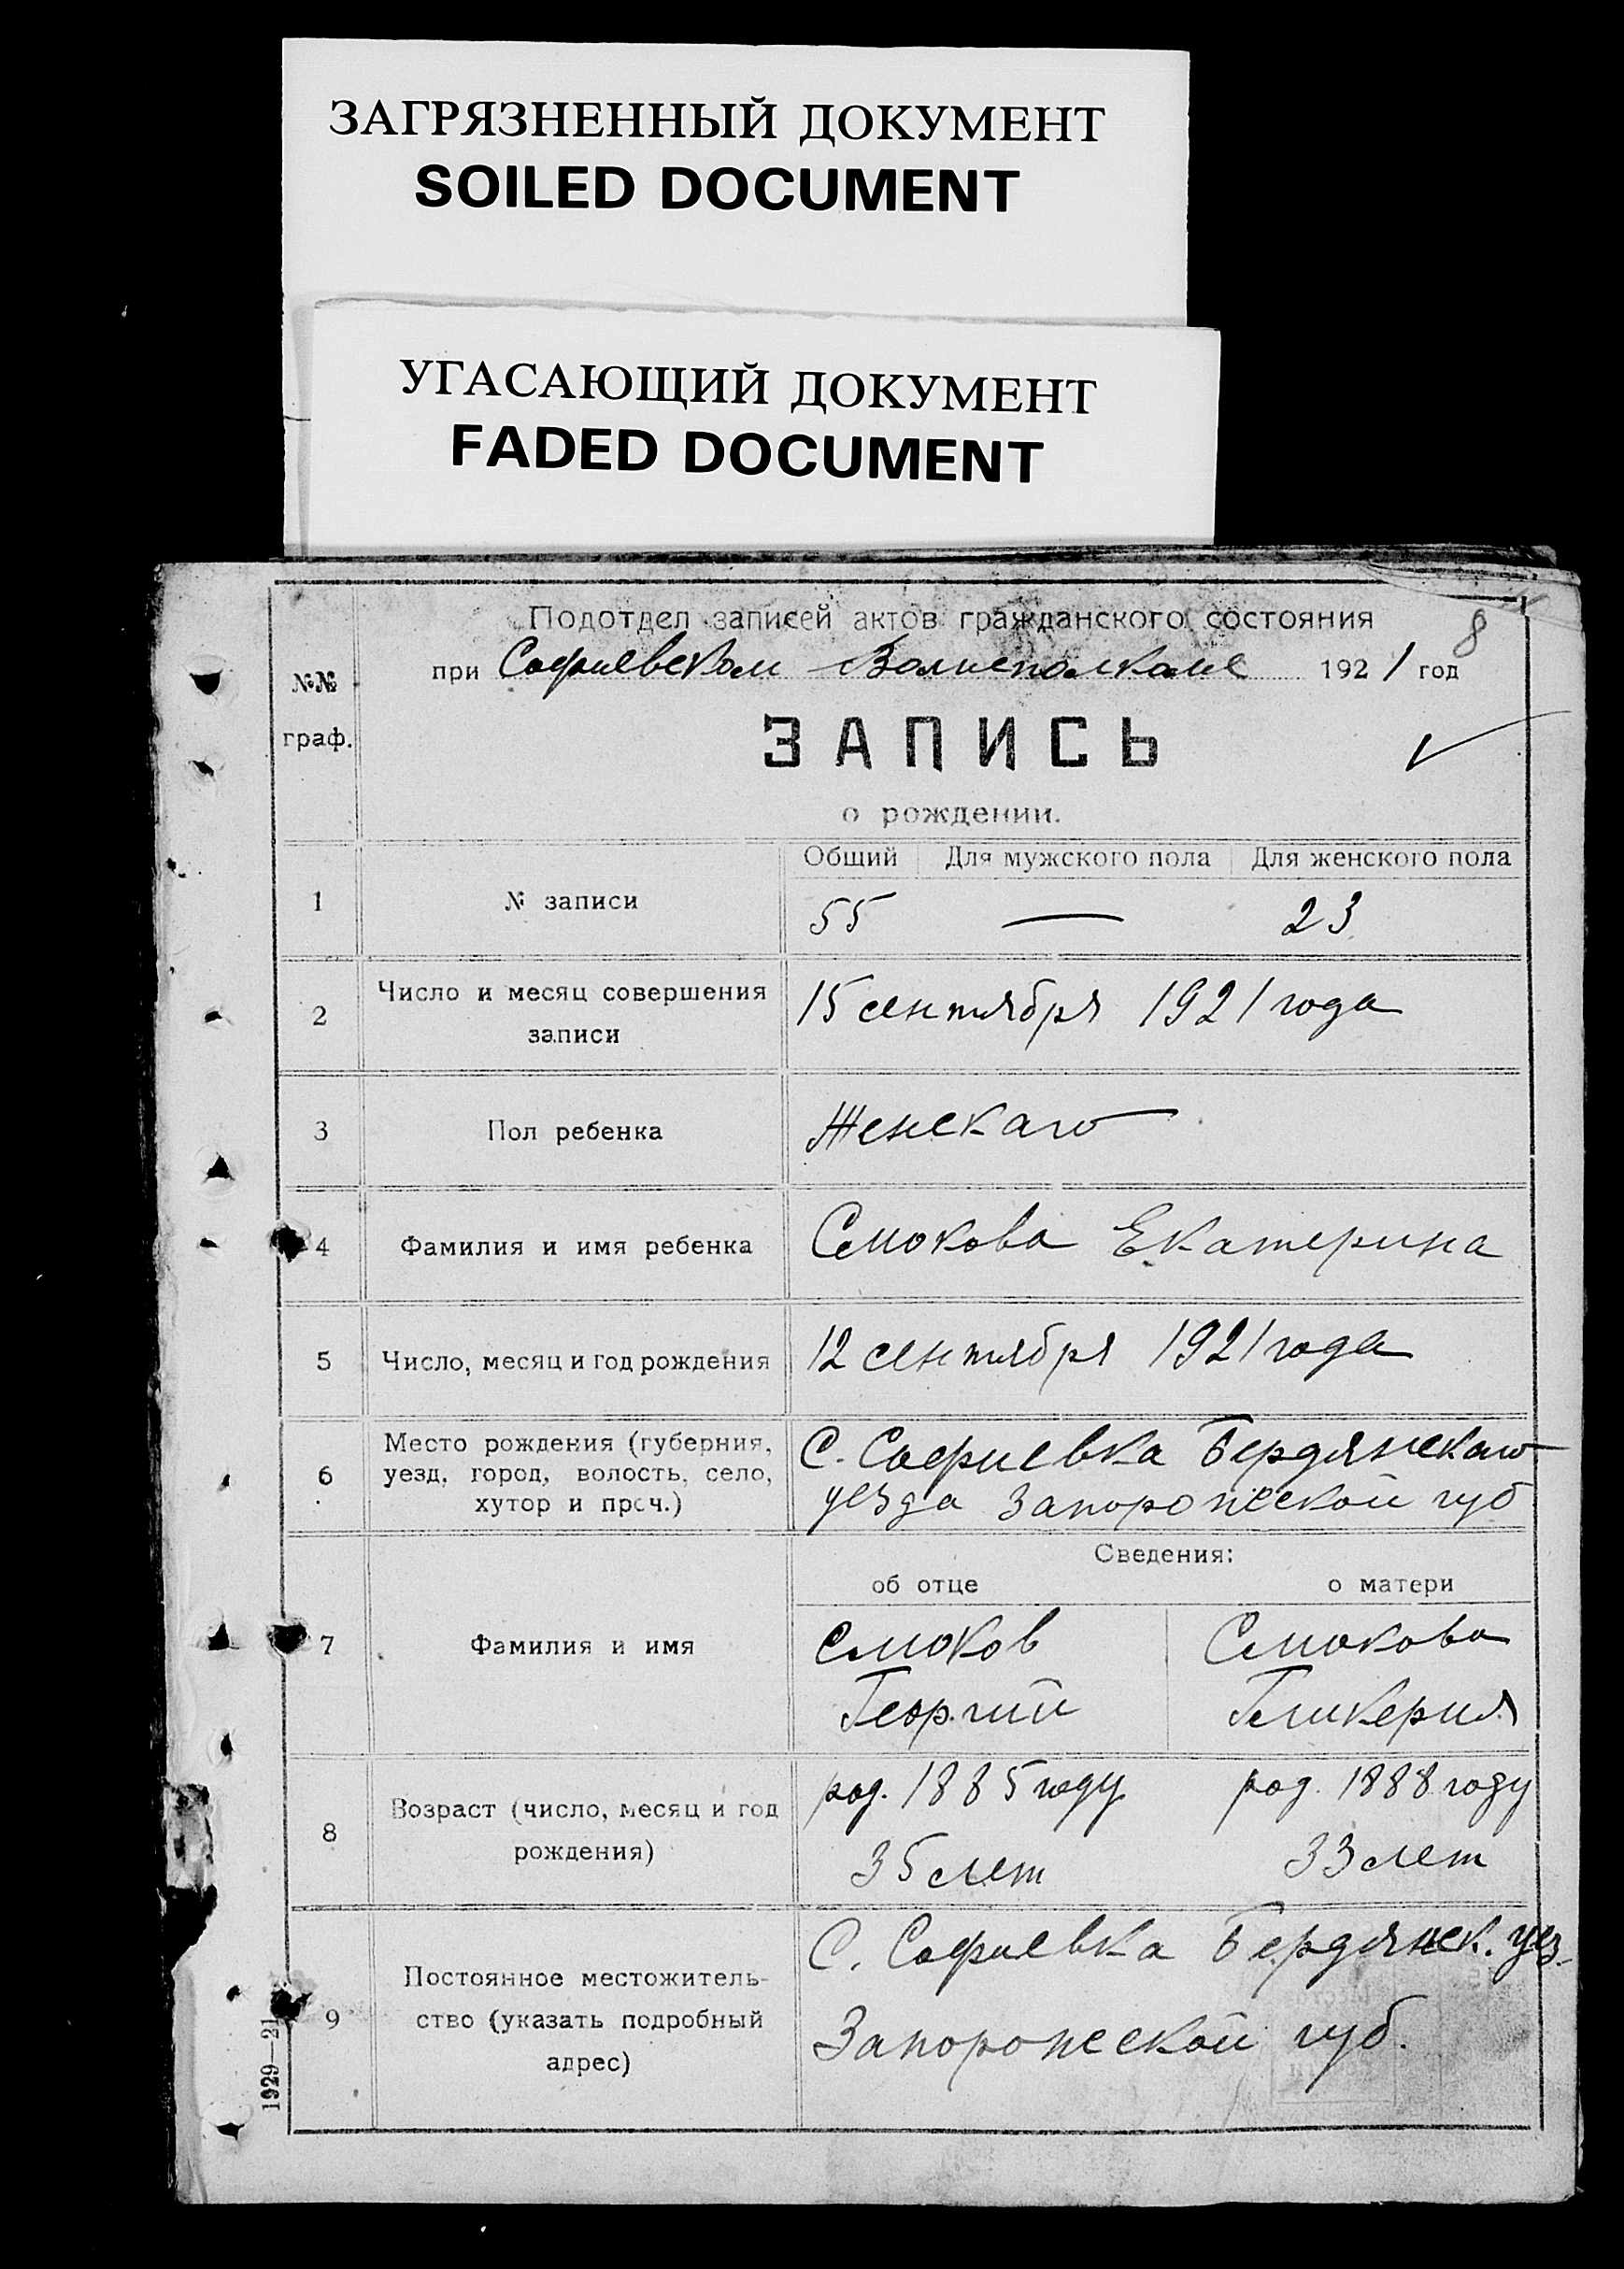 ЗАГРЯЗНЕННЫЙ ДОКУМЕНТ
SOILED DOCUMENT
УГАСАЮЩИЙ ДОКУМЕНТ
FADED DOCUMENT
Подотдел записей актов гражданского состояния
8
при Софиевском Волисполкоме 1921 год
№№
граф.
ЗАПИСЬ
о рождении.
Общий Для мужского пола Для женского пола
1 № записи 55 — 23
2 Число и месяц совершения
записи
15 сентября 1921 года
3 Пол ребенка Женскаго
4 Фамилия и имя ребенка Смокова Екатерина
5 Число, месяц и год рождения 12 сентября 1921 года
6 Место рождения (губерния,
уезд, город, волость, село,
хутор и проч.)
С. Софиевка Бердянскаго
уезда Запорожской губ
Сведения:
об отце о матери
7 Фамилия и имя
Смоков Смокова
Георгий Гликерия
8 Возраст (число, месяц и год
рождения)
род. 1885 году род. 1888 году
35 лет 33 лет
9 Постоянное местожитель-
ство (указать подробный
адрес)
С. Софиевка Бердянск. уез.
Запорожской губ.
1929—21